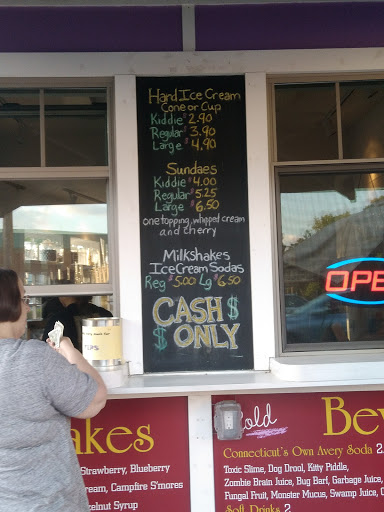 Hard Ice Cream
Cone or Cup
Kiddie $2.90
Regular $3.90
Large $4.90
Sundaes
Kiddie $4.00
Regular $5.25
Large $6.50
one topping, whipped cream
and cherry
Milkshakes
Ice Cream Sodas
Reg $5.00 Lg $6.50
CASH $
$ ONLY
OPE
TIPS
akes
Strawberry, Blueberry
ream, Campfire S'mores
zelnut Syrup
Cold
Bev
Connecticut's Own Avery Soda 2.
Toxic Slime, Dog Drool, Kitty Piddle,
Zombie Brain Juice, Bug Barf, Garbage Juice,
Fungal Fruit, Monster Mucus, Swamp Juice, C
Soft Drinks 2